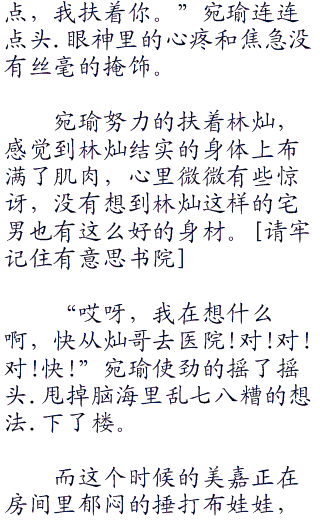 点，我扶着你。”宛瑜连连
点头.眼神里的心疼和焦急没
有丝毫的掩饰。
宛瑜努力的扶着林灿，
感觉到林灿结实的身体上布
满了肌肉，心里微微有些惊
讶，没有想到林灿这样的宅
男也有这么好的身材。[请牢
记住有意思书院]
“哎呀，我在想什么
啊，快从灿哥去医院!对!对!
对!快!”宛瑜使劲的摇了摇
头.甩掉脑海里乱七八糟的想
法.下了楼。
而这个时候的美嘉正在
房间里郁闷的捶打布娃娃，